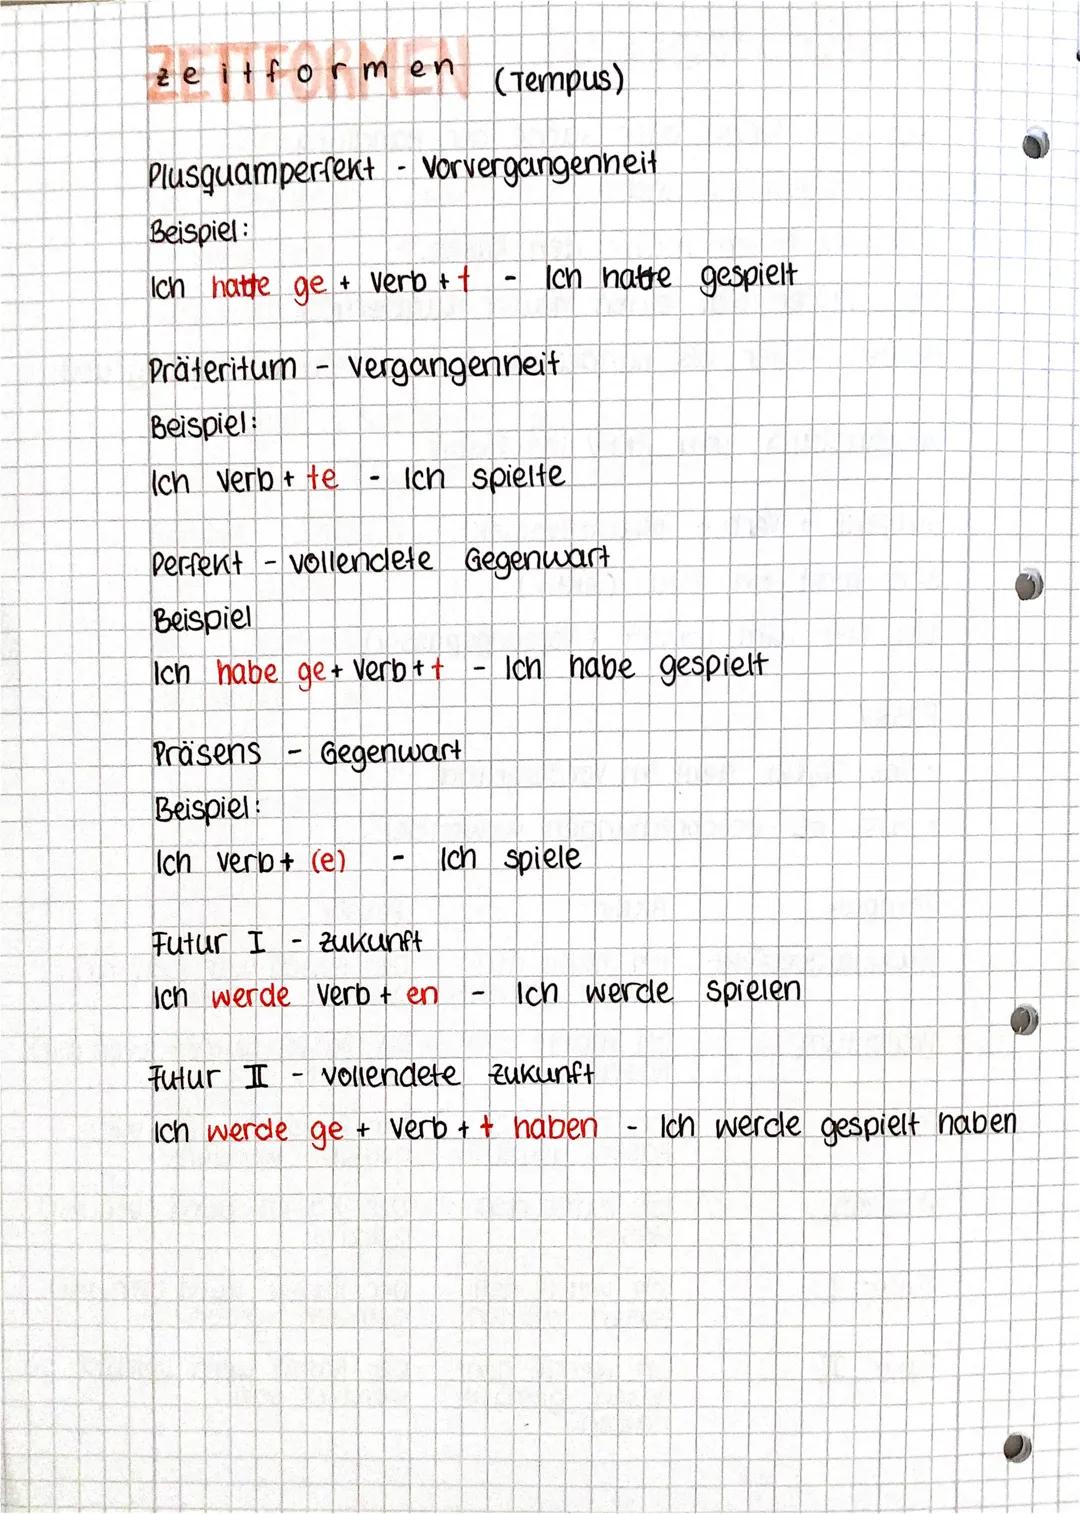 zeitformen (Tempus)
Plusquamperfekt - Vorvergangenheit
Beispiel:
Ich hatte ge + Verb + t - Ich hatte gespielt
Präteritum - Vergangenheit
Beispiel:
Ich Verb + te - Ich spielte
Perfekt - vollendete Gegenwart
Beispiel
Ich habe ge + Verb + t - Ich habe gespielt
Präsens - Gegenwart
Beispiel:
Ich Verb + (e) - Ich spiele
Futur I - Zukunft
Ich werde Verb + en - Ich werde spielen
Futur II - vollendete Zukunft
Ich werde ge + Verb + t haben - Ich werde gespielt haben